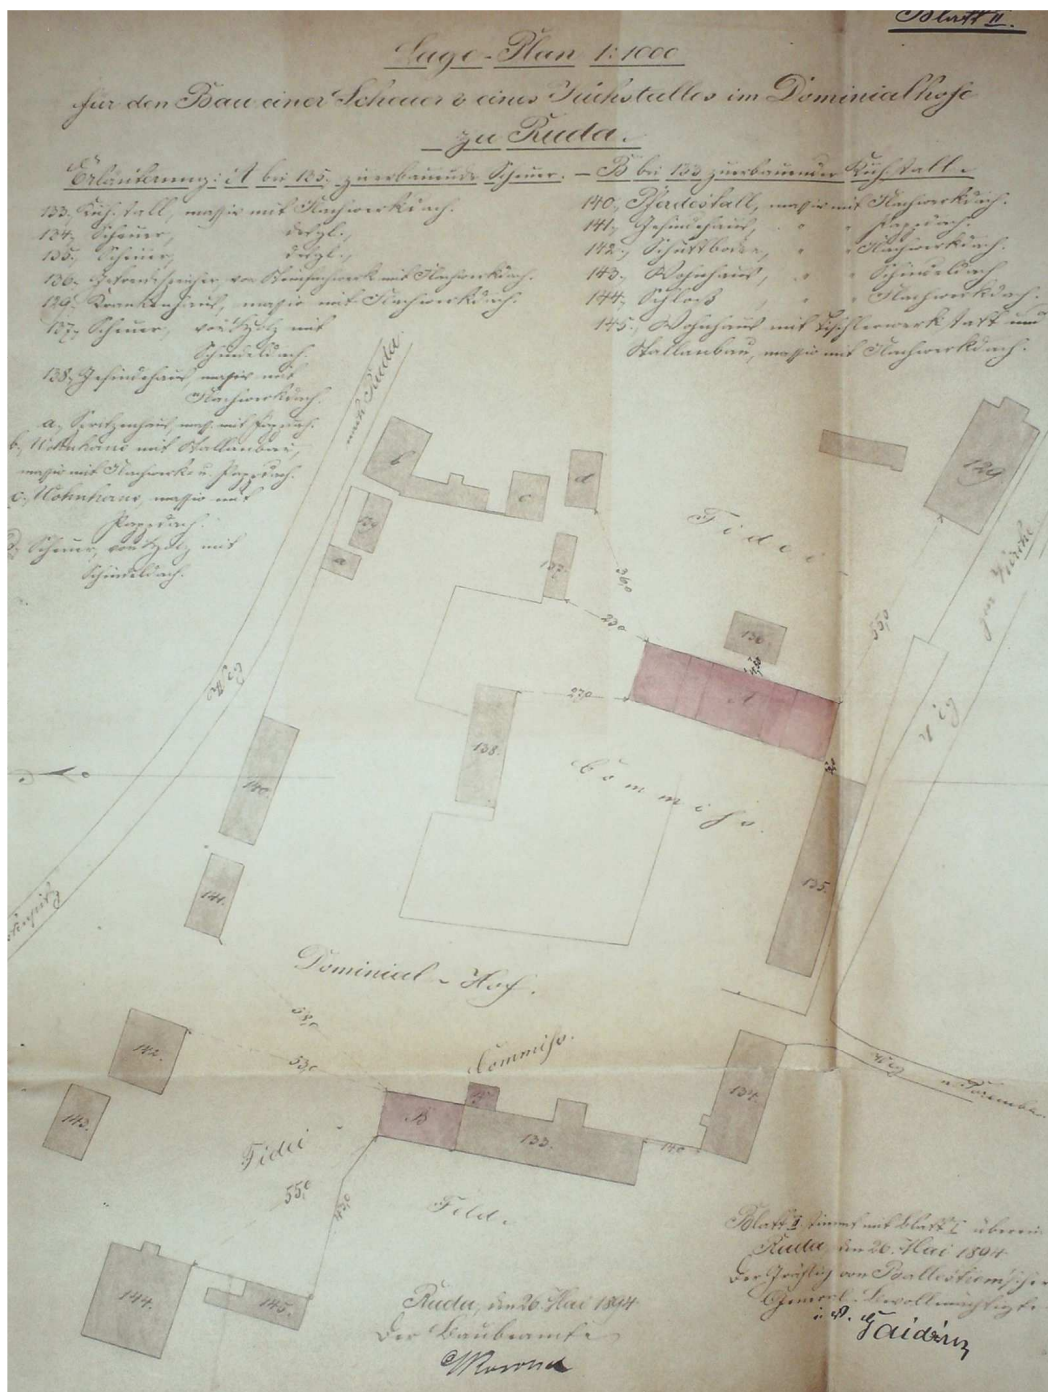 Blatt II.
Lage-Plan 1:1000
für den Bau einer Scheuer & eines Kuhstalles im Dominialhofe
zu Ruda.
Erläuterung: A bei 135. zuerbauende Scheuer. – B bei 133 zuerbauender Kuhstall.
133. Kuhstall, massiv mit Flachwerkdach.
134, Scheuer, desgl.,
135, Scheuer, desgl.,
136. Getreidespeicher von mit Flachwerkdach.
129. Krankenhaus, massiv mit Flachwerkdach.
137, Scheuer, von Holz mit
Schindeldach.
138, Gesindehaus, massiv mit
Flachwerkdach.
a, Spritzenhaus, mass. mit Pappdach.
b, Wohnhaus mit Stallanbau,
massiv mit Flachwerk- u. Pappdach.
c, Wohnhaus, massiv mit
Pappdach.
d, Scheuer, von Holz mit
Schindeldach.
140, Pferdestall, massiv mit Flachwerkdach.
141, Gesindehaus, " " Pappdach.
142, Schüttboden, " " Flachwerkdach.
143, Wohnhaus, " " Schindeldach
144, Schloß, " " Flachwerkdach.
145, Wohnhaus mit Tischlerwerkstatt und
Stallanbau, massiv mit Flachwerkdach.
nach Ruda
b
c
d
129
a
137.
Fidei
zur Kirche
36,0
23,0
136.
55,0
A
27,0
138.
Weg
Commiss.
140.
135.
141.
Dominial-Hof.
53,0
Commiss.
142.
143.
B
B
133.
134.
14,0
Weg n. Poremba
Fidei
55,0
45,0
Feld.
144.
145.
Blatt II stimmt mit Blatt I überein
Ruda, den 26. Mai 1894
Der Gräflich von Ballestrem'sche
General-Bevollmächtigte
i. V.
Ruda, den 26. Mai 1894
Der Baubeamte